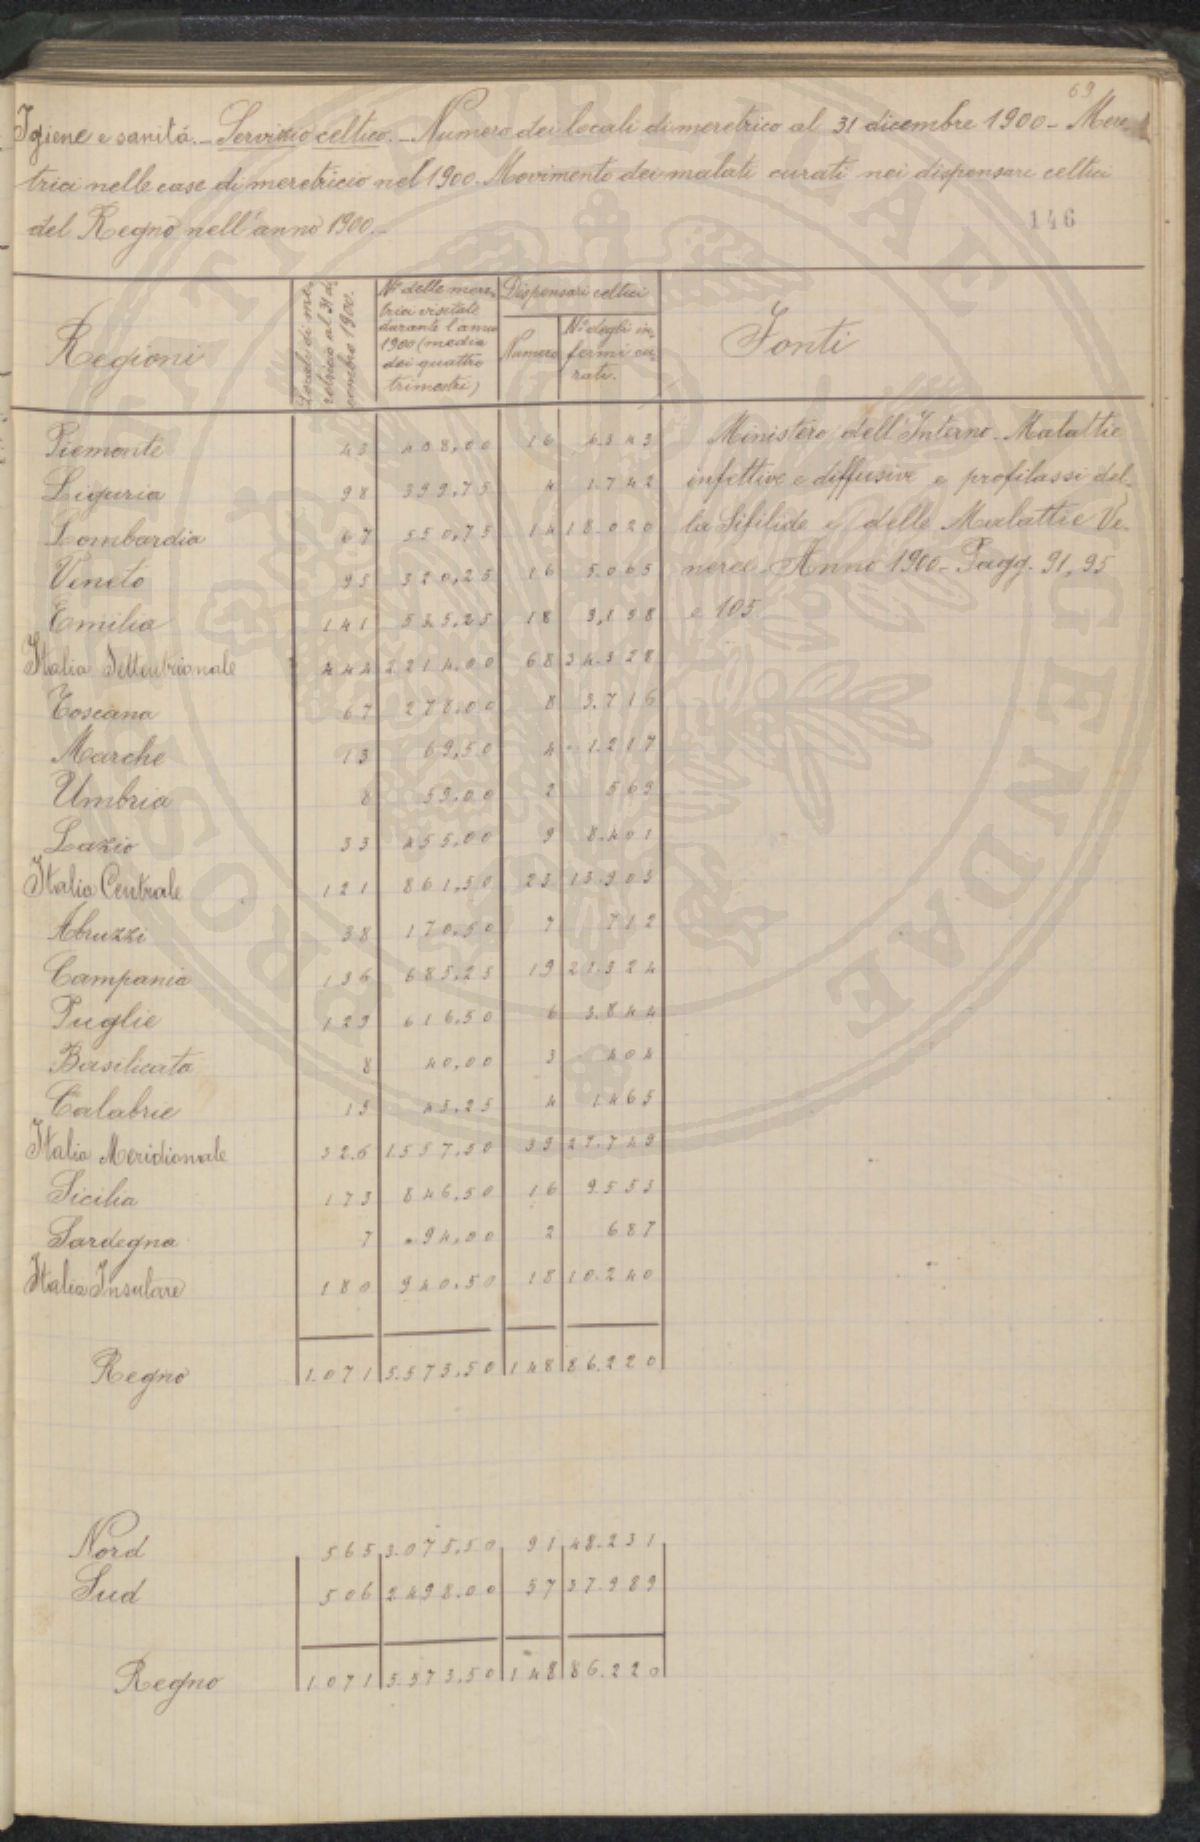 69
Igiene e sanità. - Servizio celtico. - Numero dei locali di meretricio al 31 dicembre 1900 - Mere-
trici nelle case di meretricio nel 1900. Movimento dei malati curati nei dispensari celtici
del Regno nell'anno 1900. -
146
Regioni
Locali di me-
retricio al 31 di-
cembre 1900.
N° delle mere-
trici visitate
durante l'anno
1900 (media
dei quattro
trimestri)
Dispensari celtici
Numero
N° degli in-
fermi cu-
rati.
Fonti
Piemonte 43 408,00 16 6.343
Liguria 98 399,75 4 1.742
Lombardia 67 550,75 14 18.020
Veneto 95 320,25 16 5.065
Emilia 141 535,25 18 3,158
Italia Settentrionale 444 2.214,00 68 34.328
Toscana 67 278,00 8 3.716
Marche 13 69,50 4 1.217
Umbria 8 59,00 2 569
Lazio 33 455,00 9 8.401
Italia Centrale 121 861,50 23 13.903
Abruzzi 38 170,50 7 712
Campania 136 685,25 19 21.324
Puglie 129 616,50 6 3.844
Basilicata 8 40,00 3 404
Calabrie 15 45,25 4 1465
Italia Meridionale 326 1.557,50 39 27.749
Sicilia 173 846,50 16 9553
Sardegna 7 94,00 2 687
Italia Insulare 180 940,50 18 10.240
Regno 1.071 5.573,50 148 86.220
Ministero dell'Interno. Malattie
infettive e diffusive e profilassi del-
la Sifilide e delle Malattie Ve-
neree. Anno 1900 - Pagg. 91, 95
e 105.
Nord 565 3.075,50 91 48.231
Sud 506 2498.00 57 37.989
Regno 1.071 5.573,50 148 86.220
ROSPERITATI PUBLICAE AUGENDAE